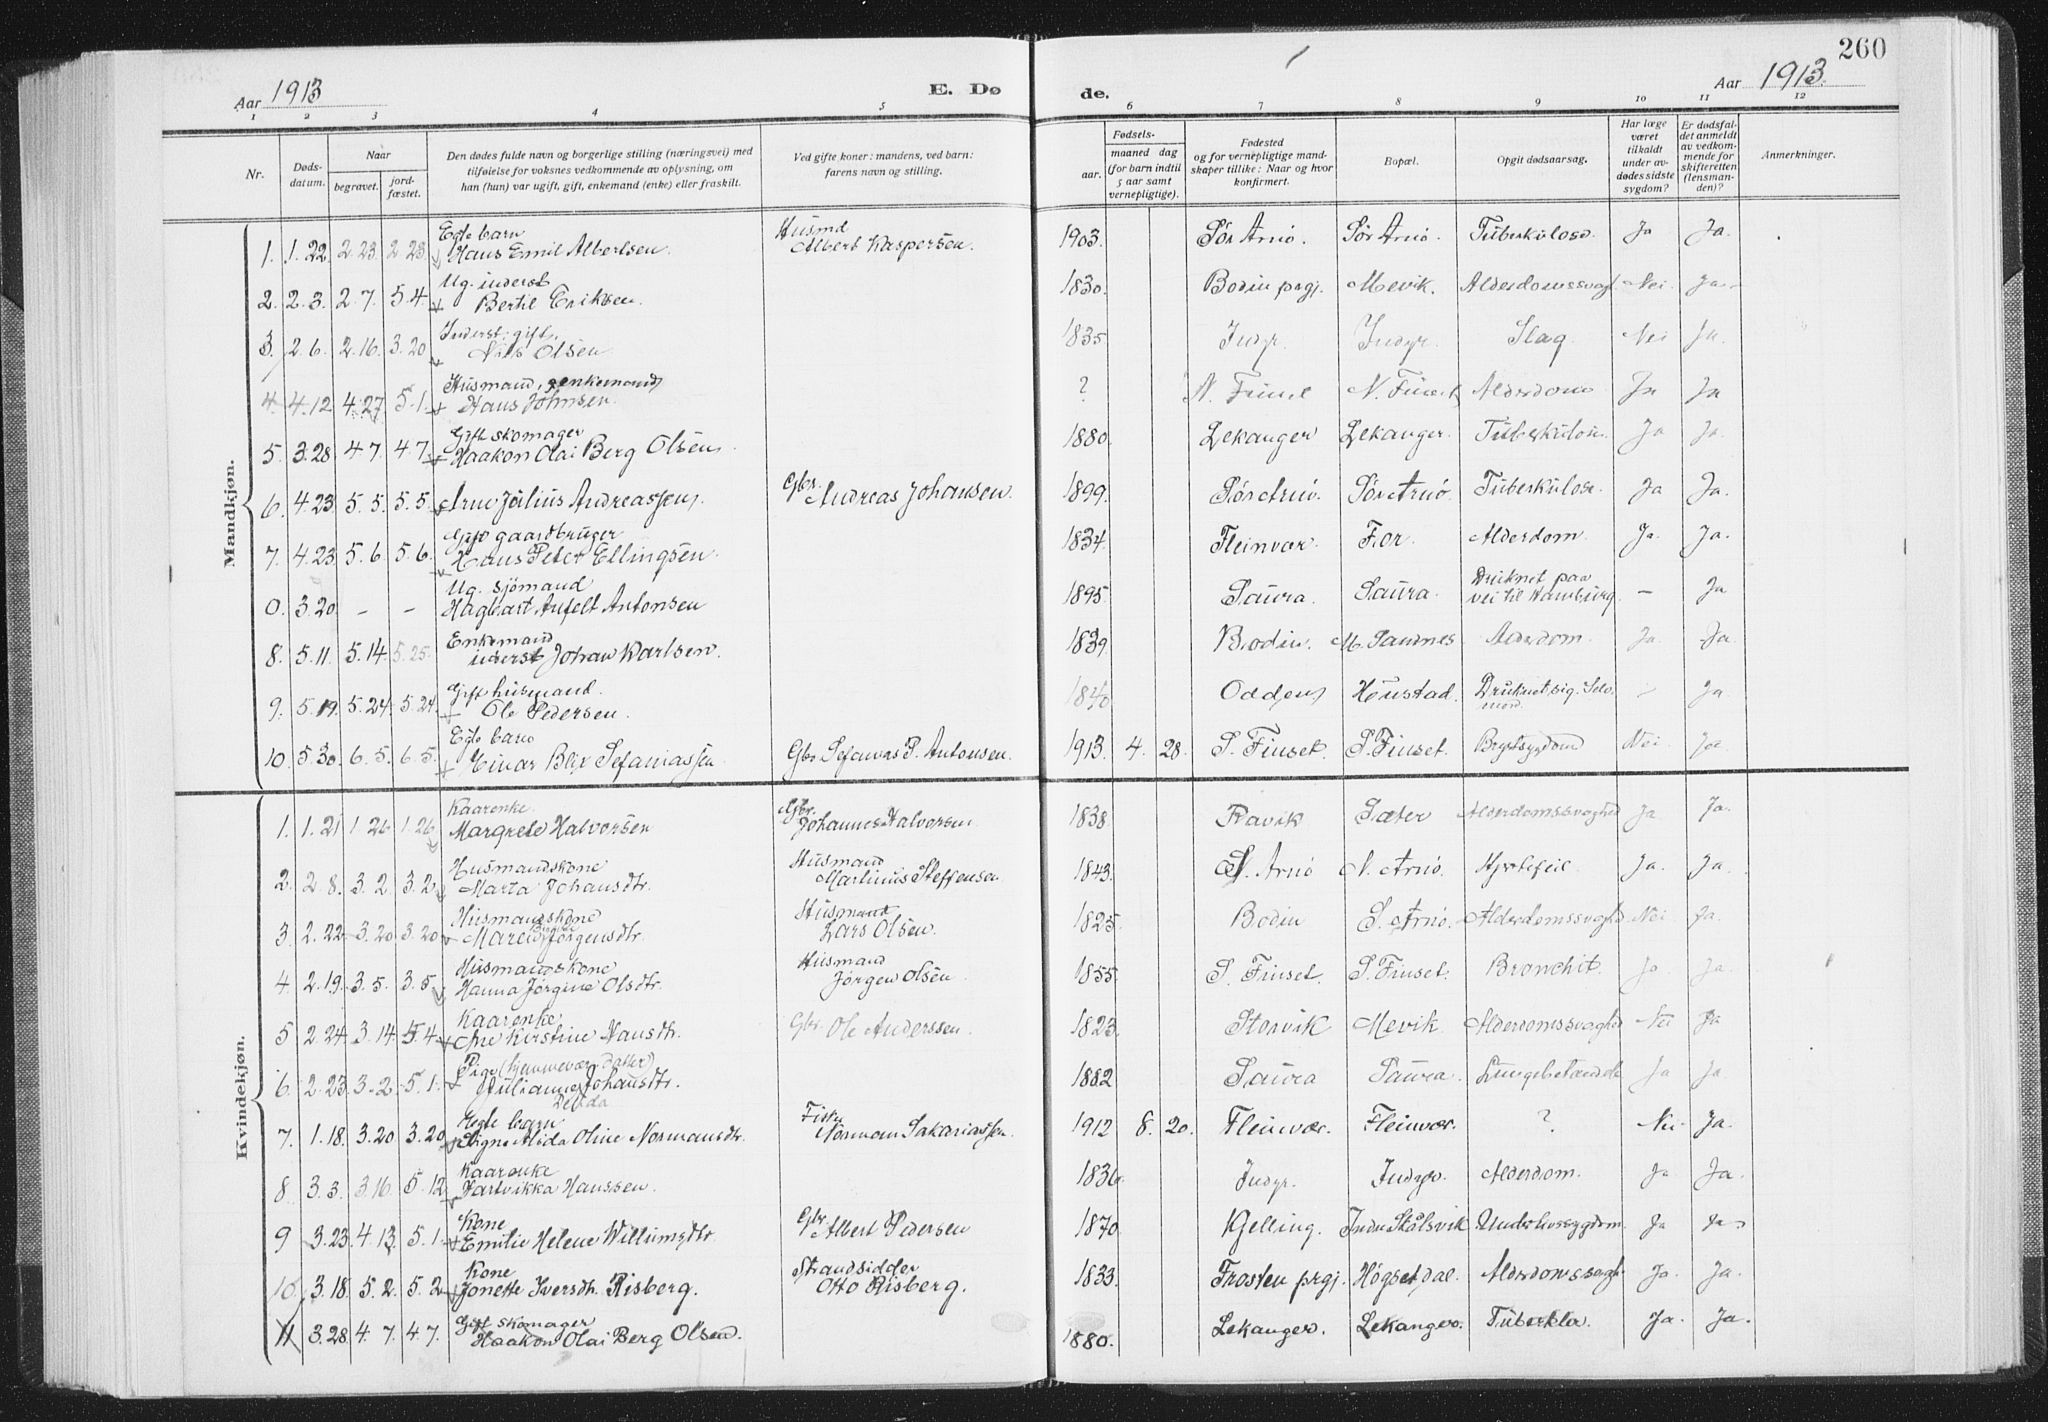 260
Aar 1913
E. Dø
de.
Aar 1913.
1 2 3 4 5 6 7 8 9 10 11 12
Nr.
Døds-
datum.
Naar
begravet.
jord-
fæstet.
Den dødes fulde navn og borgerlige stilling (næringsvei) med
tilføielse for voksnes vedkommende av oplysning, om
han (hun) var ugift, gift, enkemand (enke) eller fraskilt.
Ved gifte koner: mandens, ved barn:
farens navn og stilling.
Fødsels-
aar.
maaned dag
(for barn indtil
5 aar samt
vernepligtige).
Fødested
og for vernepligtige mand-
skaper tillike: Naar og hvor
konfirmert.
Bopæl.
Opgit dødsaarsag.
Har læge
været
tilkaldt
under av-
dødes sidste
sygdom?
Er dødsfal-
det anmeldt
av vedkom-
mende for
skifteretten
(lensman-
den)?
Anmerkninger.
Mandkjøn.
Egte barn Husmd
1. 1.22 2.23. 2 23. Hans Emil Albertsen. Albert Kaspersen. 1903. Sör Arnö. Sör Arnö. Tuberkulose. Ja Ja.
Ug. inderst
2. 2.3. 2.7. 5.4. Bertil Eriksen. 1830. Bodin prgj. Mevik. Alderdomssvagh Nei Ja
Inderst: gift,
3. 2.6. 2.16. 3.20 Nils Olsen 1835 Indyr. Indyr. Slag Nei Ja.
Husmand, enkemand
4. 4.12 4.27. 5.1. Hans Johnsen. ? N. Finset N. Finset Alderdom Ja Ja
Gift skomager
5. 3.28 4 7. 4 7. Haakon Olai Berg Olsen. 1880. Lekanger Lekanger. Tuberkulose. Ja Ja.
Gbr.
6. 4.23. 5.5. 5.5. Arne Julius Andreassen. Andreas Johansen. 1899. Sör Arnö. Sör Arnö. Tuberkulose. Ja Ja.
Gift gaardbruger
7. 4.23. 5.6. 5.6. Hans Peter Ellingsen. 1834. Fleinvær For. Alderdom. Ja. Ja.
Ug. sjömand Druknet paa
0. 3.20. – – Hagbart Anfelt Antonsen 1895 Saura. Saura. vei til Hamburg. – Ja
Enkemand
8. 5.11. 5.14. 5.25. inderst Johan Karlsen. 1839. Bodin. M. Sandnes Alderdom. Ja. Ja.
Gift husmand. Druknet sig. Selv
9. 5.19. 5.24. 5.24. Ole Pedersen. 1840 Oddens Houstad. mord. – Ja
Egte barn
10. 5.30. 6.5. 6.5. Einar Blix Sefaniassen Gbr. Sefanias P. Antonsen. 1913. 4. 28. S. Finset. S. Finset. Brystsygdom Nei Ja
Kvindekjøn.
Kaarenke. Gbr.
1. 1.21 1 26 1.26. Margrete Halvorsen Johannes Halvorsen 1838. Ravik Sæter Alderdomssvaghed Ja Ja.
Husmandskone Husmand
2. 2 8. 3.2. 3.2. Marta Johansdtr. Martinus Steffensen 1843. N. Arnö N. Arnö. Hjertefeil. Ja. Ja.
Husmandskone Husmand
3. 2.22 3.20 3.20 Maren Jörgensdtr. Lars Olsen. 1825. Bodin S. Arnö. Alderdomssvaghed Nei Ja.
Husmandskone Husmand
4. 2.19. 3.5. 3.5. Hanna Jörgine Olsdtr. Jörgen Olsen 1855. S. Finset. S. Finset. Bronchit. Ja Ja.
Kaarenke
5 2.24. 3.14. 5.4. Ane Kirstine Hansdtr. Gbr. Ole Anderssen. 1823. Storvik Mevik. Alderdomssvaghed Nei Ja
Pige (hjemmevær. datter)
6. 2.23. 3-2. 5.1. Julianne Johansdtr. 1882 Saura Saura. Lungebetændelse Ja Ja
Delida
Ægte barn Fisker
7. 1.18. 3.20 3.20. Signe Alida Oline Normansdtr. Norman Sakariassen. 1912 8. 20. Fleinvær. Fleinvær. ? Nei Ja.
Kaarenke
8. 3.3. 3.16. 5.12 Hartvikka Hanssen. 1836. Indyr. Indyr. Alderdom. Ja Ja.
Kone Gbr.
9 3.23. 4.13. 5.1. Emilie Helene Willumsdtr. Albert Pedersen 1870. Kjelling. Indre Skålsvik Underlivssygdom. Ja Ja
Kone Strandsidder
10. 3.18. 5.2. 5.2. Jonette Iversdtr. Risberg. Otto Risberg. 1833. Frosten prgj. Högsetdal. Alderdomssvagh. Ja. Ja.
Gift skomager
11 3.28. 4.7. 4.7. Haakon Olai Berg Olsen. 1880. Lekanger. Lekanger. Tuberklos Ja. Ja.